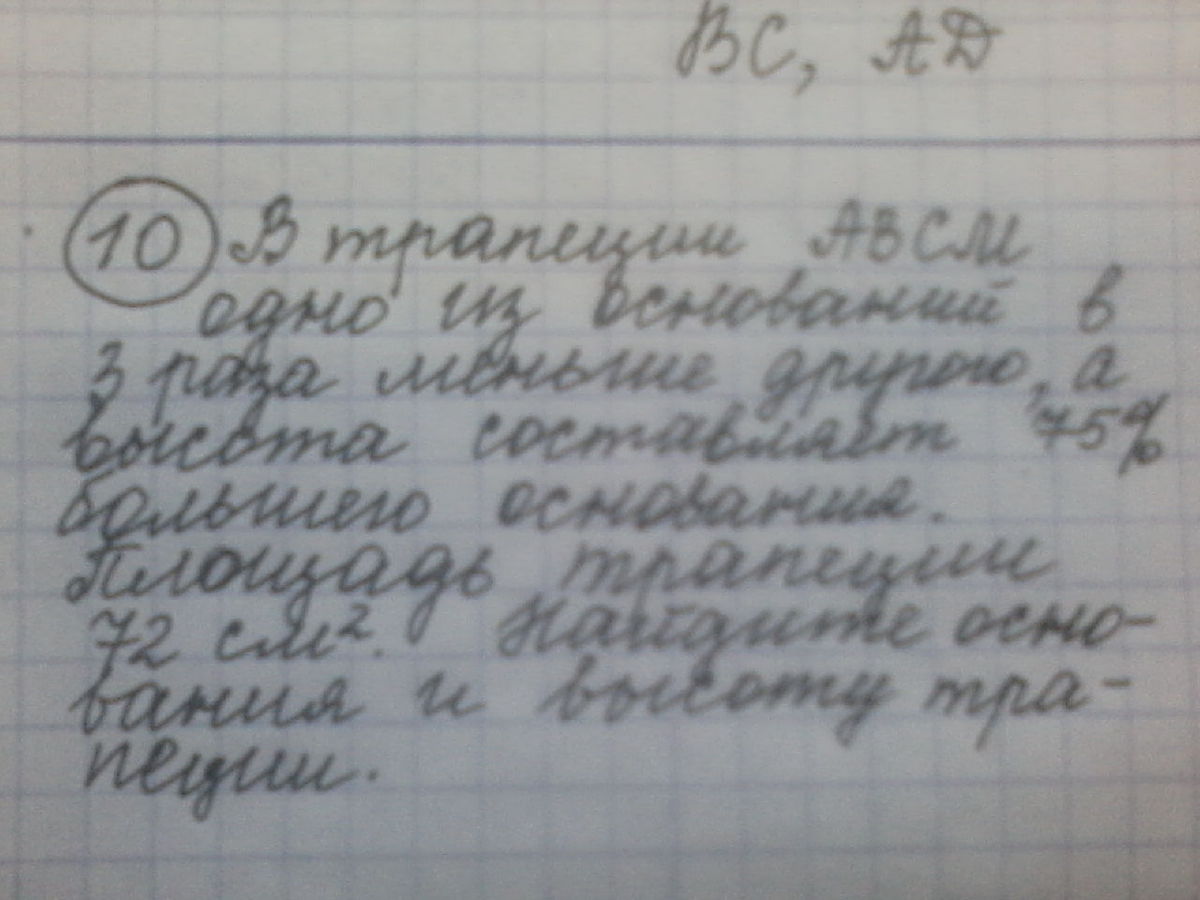 ВС, АД
10 В трапеции АВСМ
одно из оснований в
3 раза меньше другого, а
высота составляет 75%
большего основания.
Площадь трапеции
72 см². Найдите осно-
вания и высоту тра-
пеции.